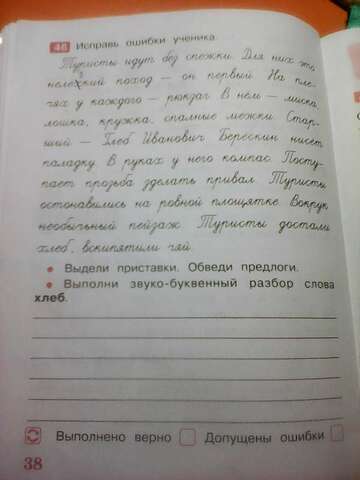 46 Исправь ошибки ученика.
Туристы идут без спежки. Для них это
нелехкий поход — он первый На пле-
чях у каждого — рюкзаг В нём — миска,
лошка, кружка, спалные межки Стар-
ший — Глеб Иванович Берескин нисет
паладку В руках у него компас. Посту-
пает прозьба зделать привал Туристы
остонавились на ровной площятке. Вокрук
необычьный пейзаж Туристы достали
хлеб, вскипятили чяй.
• Выдели приставки. Обведи предлоги.
• Выполни звуко-буквенный разбор слова
хлеб.
Выполнено верно Допущены ошибки
38